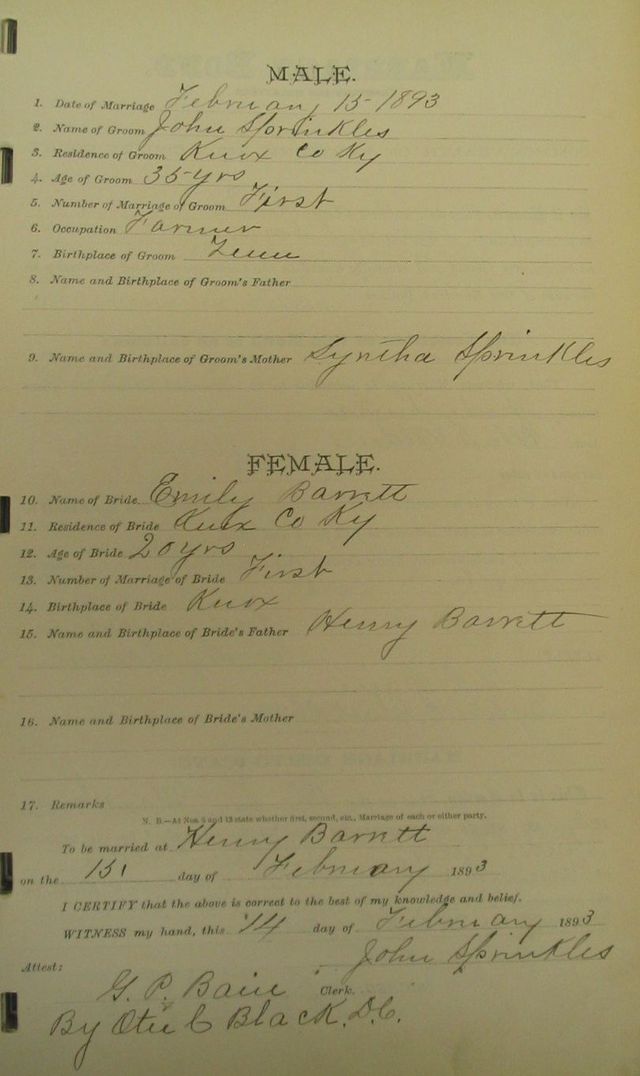 MALE.
1. Date of Marriage February 15 1893
2. Name of Groom John Sprinkles
3. Residence of Groom Knox Co Ky
4. Age of Groom 35 yrs
5. Number of Marriage of Groom First
6. Occupation Farmer
7. Birthplace of Groom Tenn
8. Name and Birthplace of Groom's Father
9. Name and Birthplace of Groom's Mother Syntha Sprinkles
FEMALE.
10. Name of Bride Emily Barrett
11. Residence of Bride Knox Co Ky
12. Age of Bride 20 yrs
13. Number of Marriage of Bride First
14. Birthplace of Bride Knox
15. Name and Birthplace of Bride's Father Henry Barrett
16. Name and Birthplace of Bride's Mother
17. Remarks
N. B.—At Nos. 5 and 13 state whether first, second, etc., Marriage of each or either party.
To be married at Henry Barrett
on the 15 day of February 1893
I CERTIFY that the above is correct to the best of my knowledge and belief.
WITNESS my hand, this 14 day of February 1893
John Sprinkles
Attest:
G. P. Clerk.
By C Black, D.C.